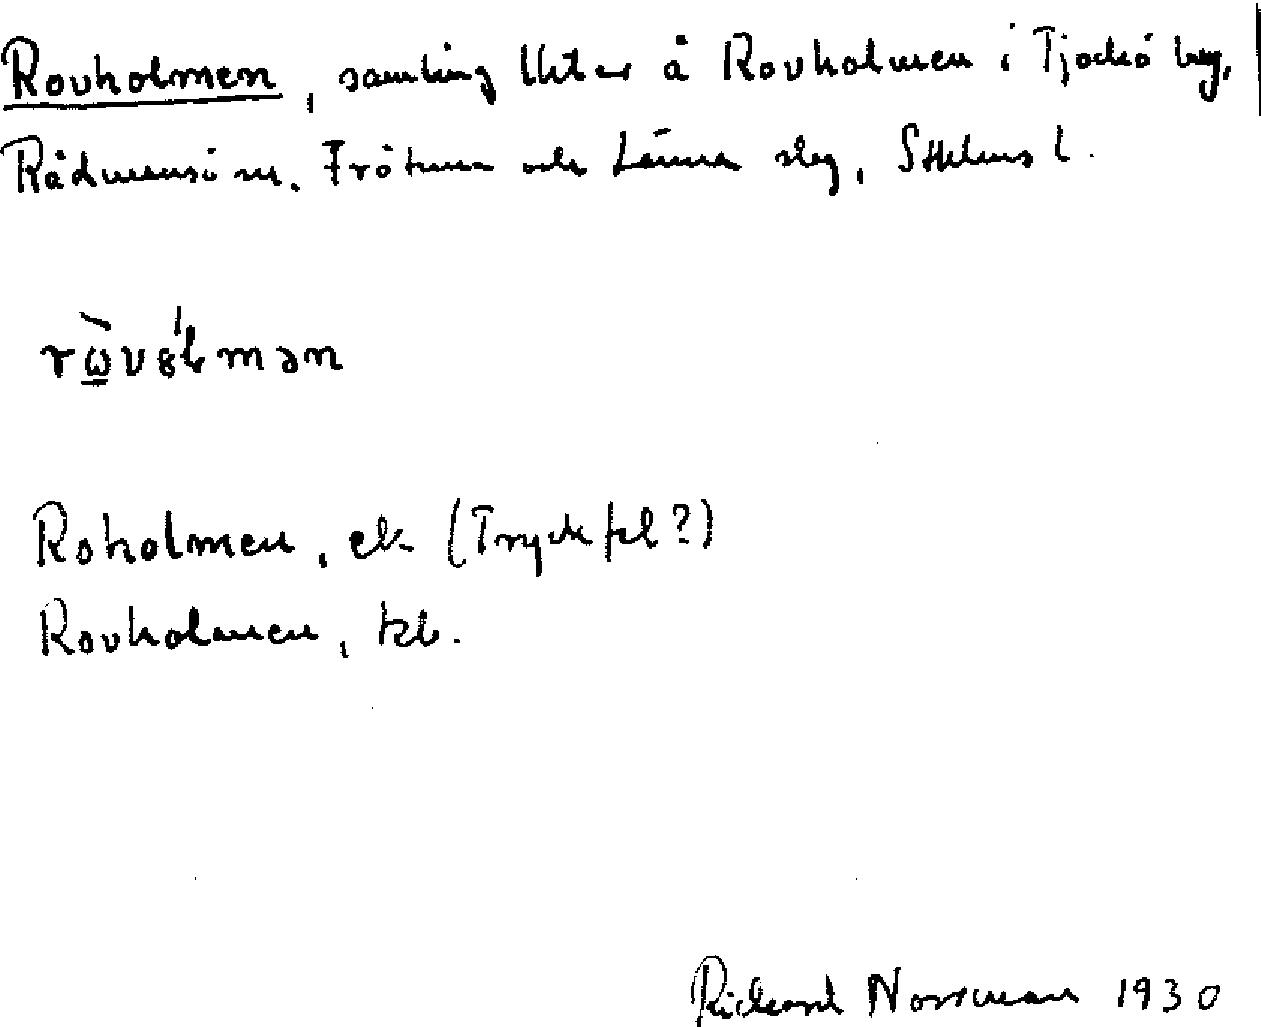 Rovholmen, samling lhter å Rovholmen i Tjockö by,
Rådmansö sn. Frötuna och Länna slg, Sthlms l.
rὼ̲vɞl̍mən
Roholmen, ek (Tryckfel?)
Rovholmen, tkb.
Rickard Norrman 1930